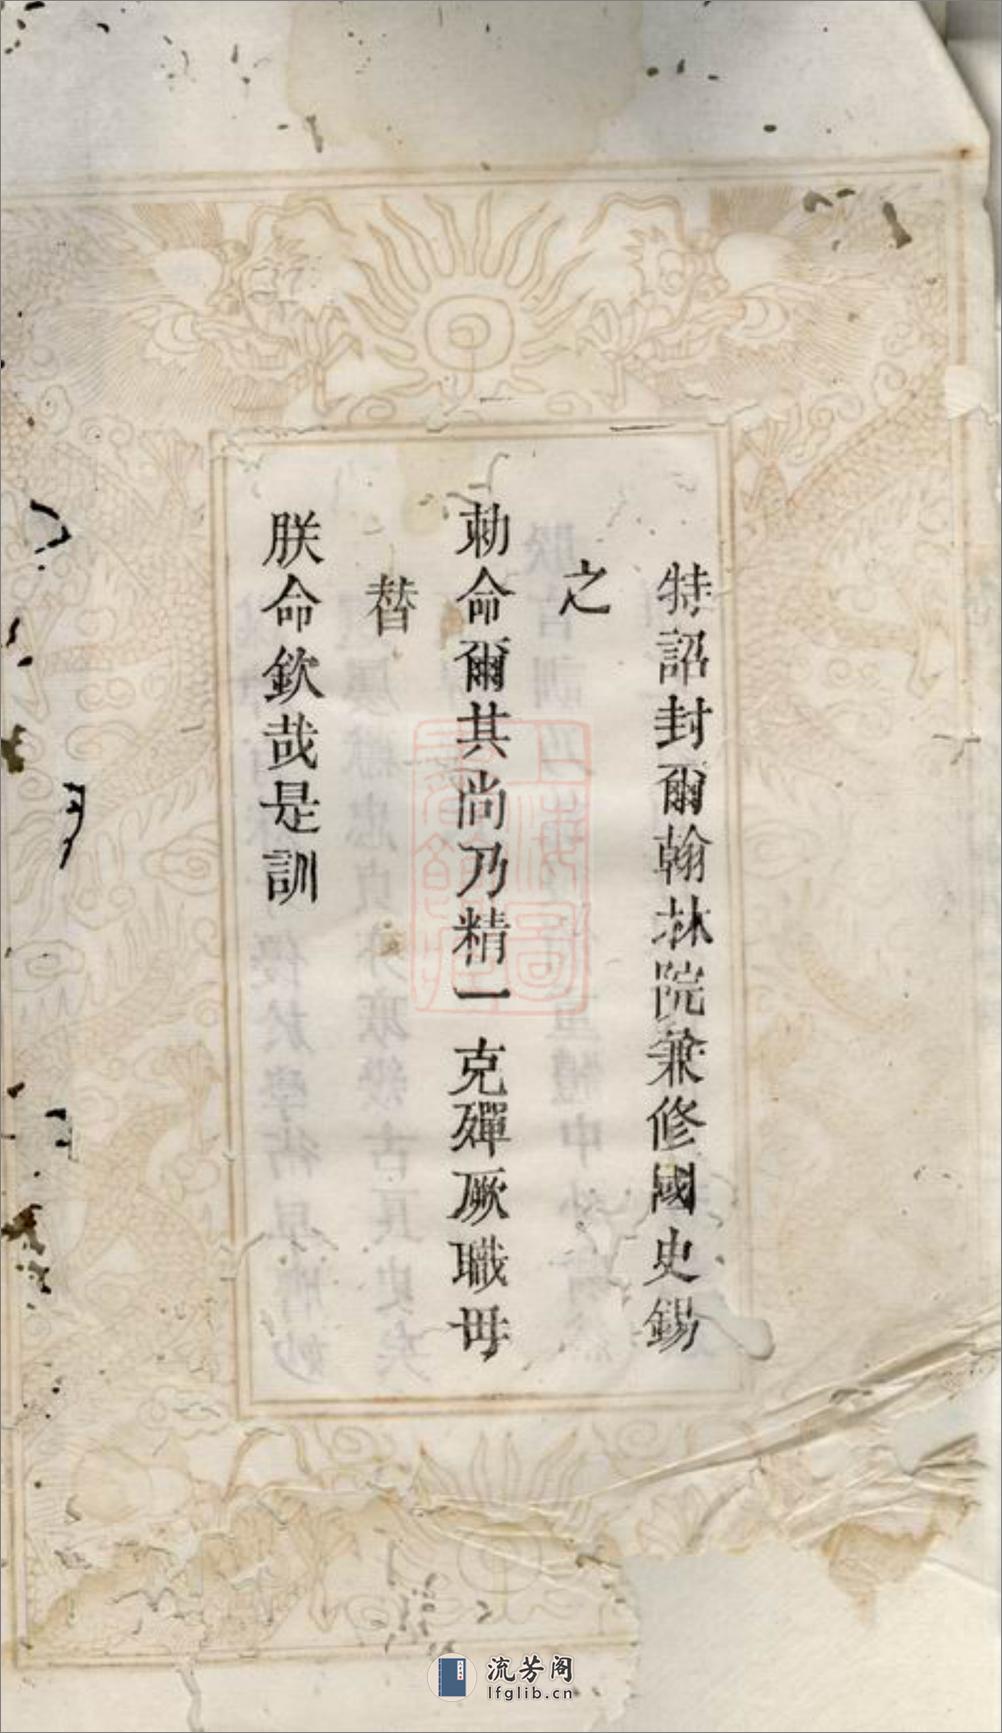 特詔封爾翰林院兼修國史錫
之
勑命爾其尚乃精一克殫厥職毋
替
朕命欽哉是訓
上海圖書館藏
流芳阁
lfglib.cn